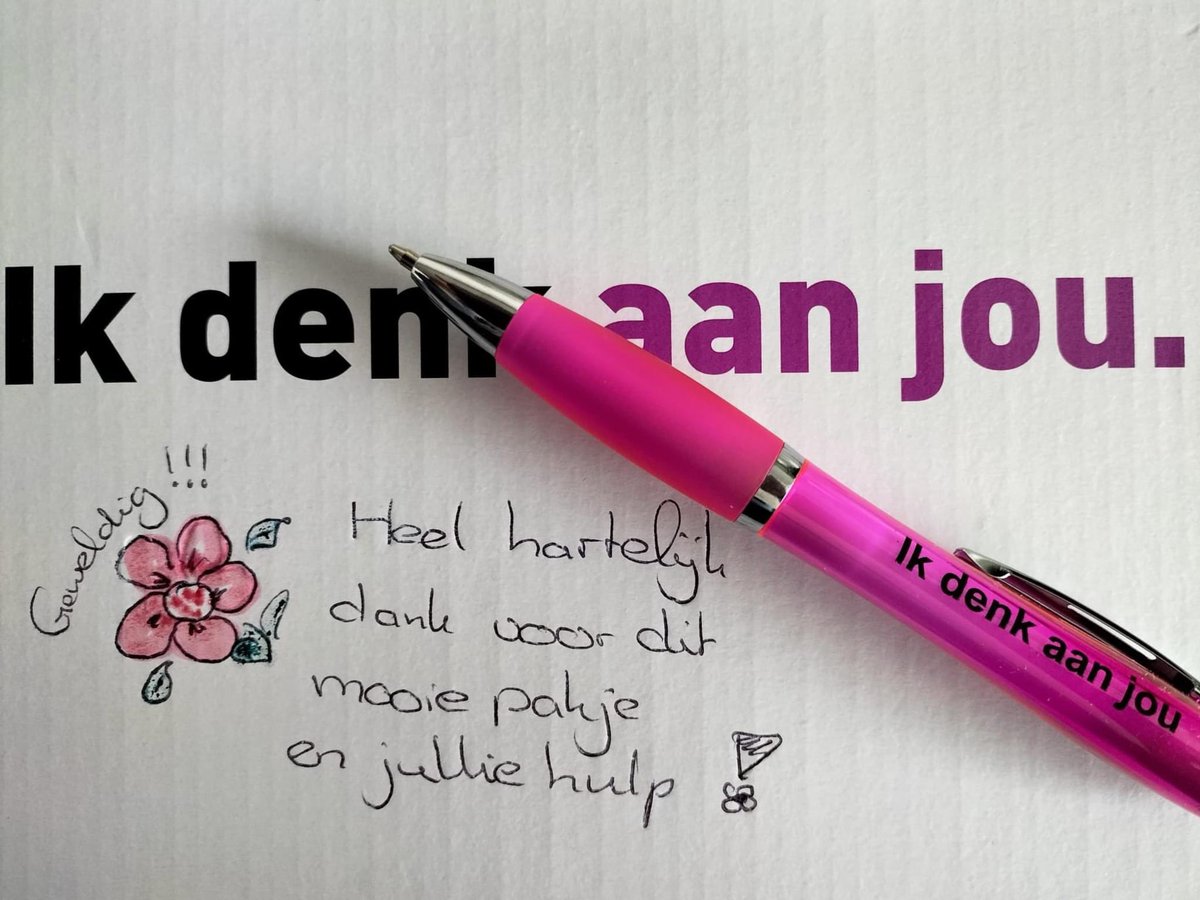 Ik denk aan jou.
Geweldig !!!
Heel hartelijk
dank voor dit
mooie pakje
en jullie hulp !
Ik denk aan jou